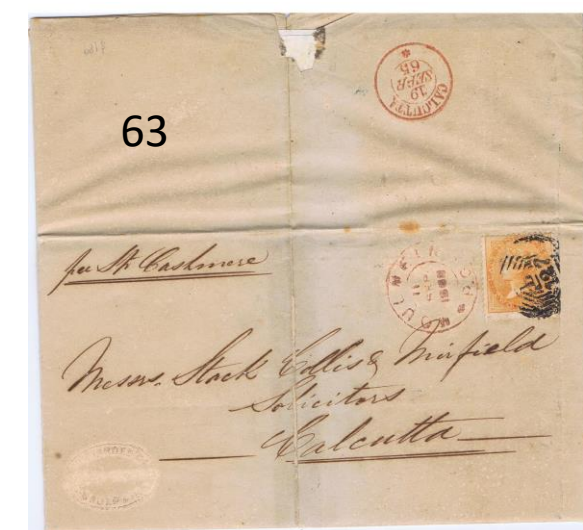 63
CALCUTTA
19
SEPR
65
per Str Cashmere
Messrs. Stack Collis & Mirfield
Solicitors
Calcutta